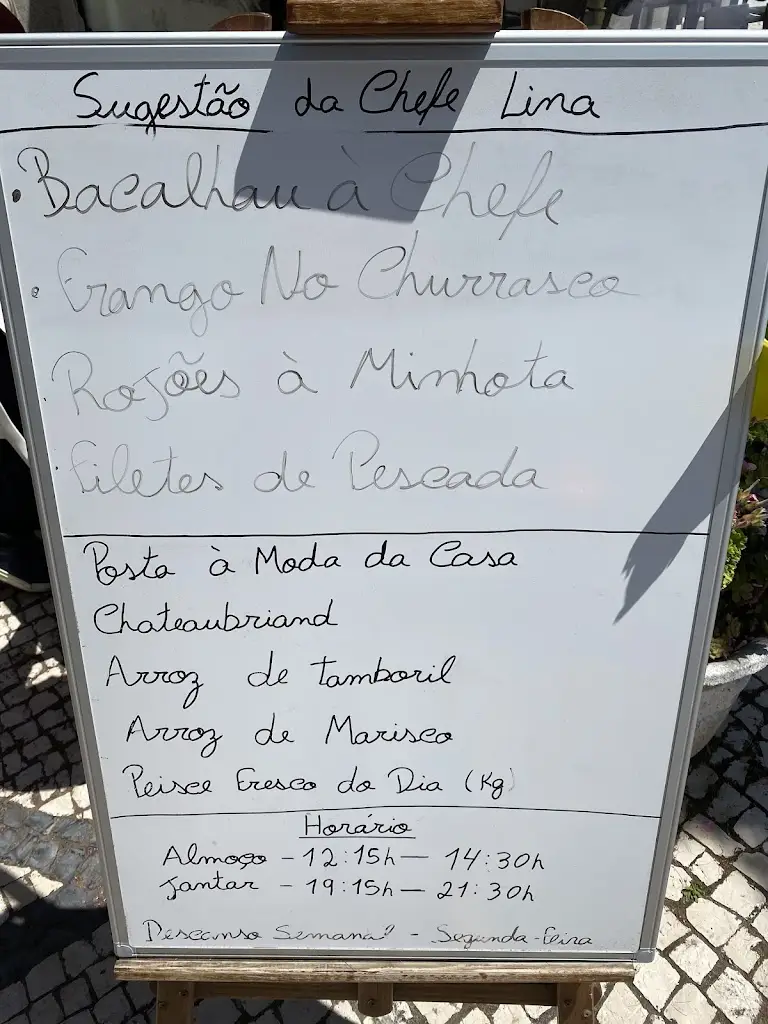 Sugestão da Chefe Lina
• Bacalhau à Chefe
• Frango No Churrasco
Rojões à Minhota
• Filetes de Pescada
Posta à Moda da Casa
Chateaubriand
Arroz de tamboril
Arroz de Marisco
Peixe Fresco do Dia (Kg)
Horário
Almoço - 12:15h - 14:30h
Jantar - 19:15h - 21:30h
Descanso Semanal - Segunda-Feira